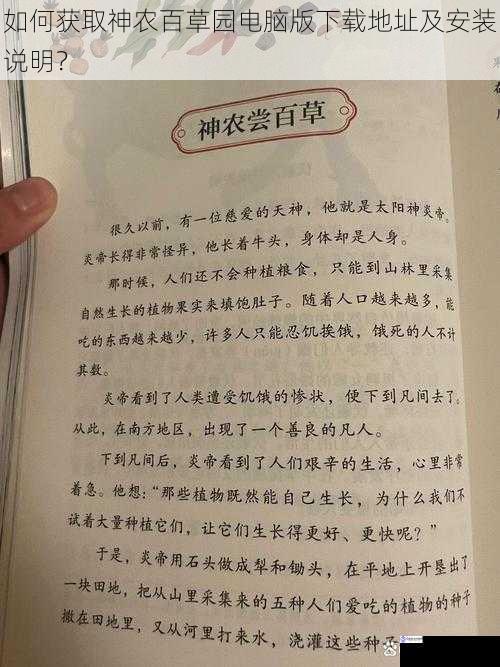 如何获取神农百草园电脑版下载地址及安装
说明？
神农尝百草
很久以前，有一位慈爱的天神，他就是太阳神炎帝。
炎帝长得非常怪异，他长着牛头，身体却是人身。
那时候，人们还不会种植粮食，只能到山林里采集
自然生长的植物果实来填饱肚子。随着人口越来越多，能
吃的东西越来越少，许多人只能忍饥挨饿，饿死的人不计
其数。
炎帝看到了人类遭受饥饿的惨状，便下到凡间去了。
从此，在南方地区，出现了一个善良的凡人。
下到凡间后，炎帝看到了人们艰辛的生活，心里非常
着急。他想：“那些植物既然能自己生长，为什么我们不
试着大量种植它们，让它们生长得更好、更快呢？”
于是，炎帝用石头做成犁和锄头，在平地上开垦出了
一块田地，把从山里采集来的五种人们爱吃的植物的种子
撒在田地里，又从河里打来水，浇灌这些种子